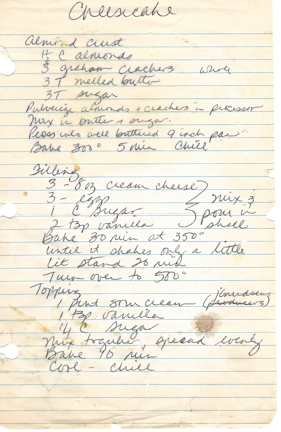 Cheesecake
Almond crust
1/2 C almonds
3 graham crackers whole
3 T melted butter
3T sugar
Pulverize almonds + crackers in processor
Mix in butter + sugar.
Press into well buttered 9 inch pan
Bake 300° 5 min Chill
Filling
3 - 8 oz cream cheese
3 - eggs
1 C sugar
2 tsp vanilla
mix &
pour in
shell
Bake 30 min at 350°
until it shakes only a little
Let stand 20 min
Turn oven to 500°
Topping
1 pint sour cream
1 tsp vanilla
1/4 C sugar
Mix together, spread evenly
Bake 10 min
Cool - chill